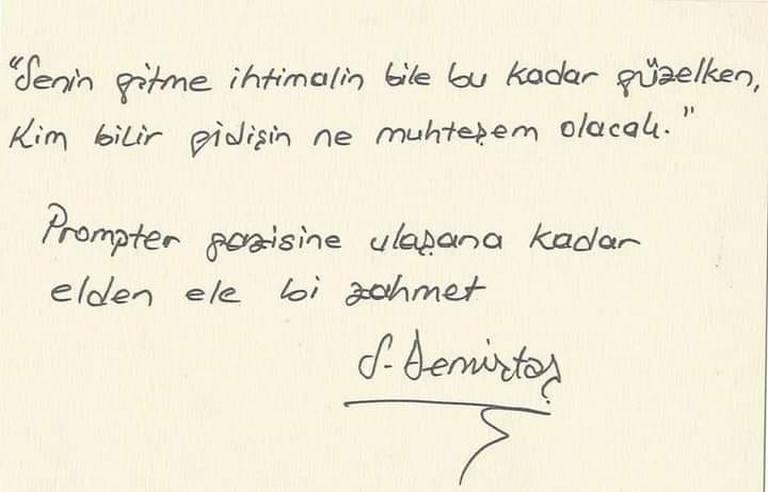 “Senin gitme ihtimalin bile bu kadar güzelken,
Kim bilir gidişin ne muhteşem olacak.”
Prompter gazisine ulaşana kadar
elden ele bi zahmet
S. Demirtaş